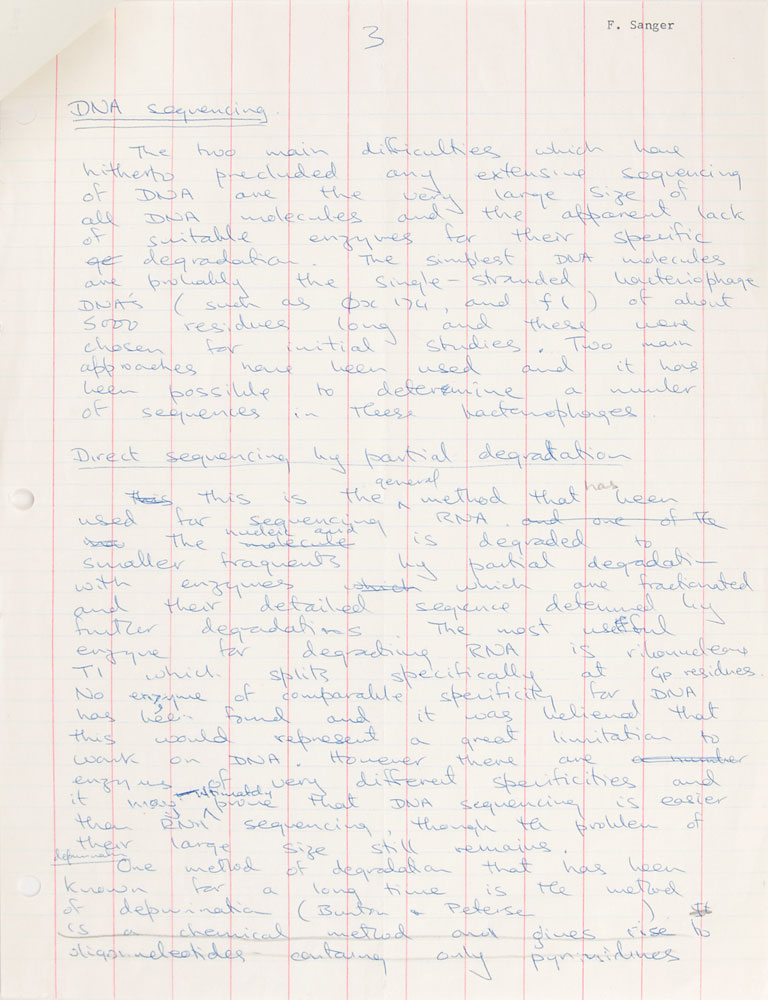 F. Sanger
3
DNA sequencing.
The two main difficulties which have
hitherto precluded any extensive sequencing
of DNA are the very large size of
all DNA molecules and the apparent lack
of suitable enzymes for their specific
degradation. The simplest DNA molecules
are probably the single-stranded bacteriophage
DNA's (such as ϕx 174, and f1) of about
5000 residues long and these were
chosen for initial studies. Two main
approaches have been used and it has
been possible to determine a number
of sequences in these bacteriophages.
Direct sequencing by partial degradation
general has
this this is the method that been
used for sequencing RNA. and one of the
nucleic acid
the molecule is degraded to
smaller fragments by partial degradati-
with enzymes which which are fractionated
and their detailed seqence determined by
further degradations. The most useful
enzyme for degrading RNA is ribonuclease
T1 which splits specifically at Gp residues.
No enzyme of comparable specificity for DNA
has been found and it was believed that
this would represent a great limitation to
work on DNA. However there are a number
enzymes of very different specificities and
ultimately
it may prove that DNA sequencing is easier
than RNA sequencing, though the problem of
their large size still remains.
depurination
One method of degradation that has been
known for a long time is the method
of depurination (Burton & Peterse ) It
is a chemical method and gives rise to
oligonucleotides containg only pyrimidines